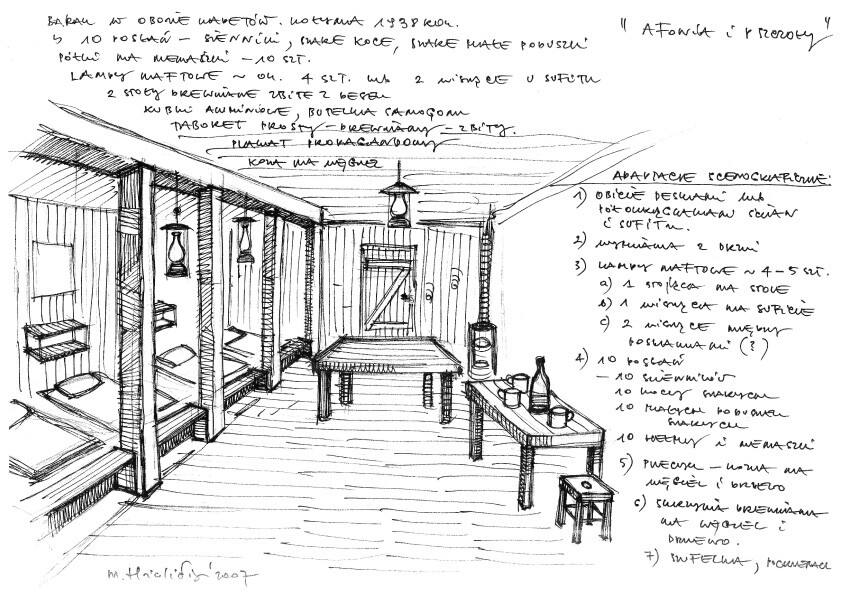 BARAK W OBOZIE KOŁYMA 1938 ROK.
↳ 10 POSŁAŃ – SIENNIKI, SZARE KOCE, SZARE MAŁE PODUSZKI
PÓŁKI NA MENAŻKI – 10 SZT.
LAMPY NAFTOWE ~ OK. 4 SZT. LUB 2 WISZĄCE U SUFITU
2 STOŁY DREWNIANE ZBITE Z DESEK
KUBKI ALUMINIOWE, BUTELKA SAMOGONU
TABORET PROSTY – DREWNIANY – ZBITY.
PLAKAT PROPAGANDOWY
KOZA NA WĘGIEL
"AFONIA I PSZCZOŁY"
ADAPTACJE SCENOGRAFICZNE:
1) OBICIE DESKAMI LUB
PÓŁOKRĄGLAKAMI ŚCIAN
I SUFITU.
2) WYMIANA 2 DRZWI
3) LAMPY NAFTOWE ~ 4–5 SZT.
a) 1 STOJĄCA NA STOLE
b) 1 WISZĄCA NA SUFICIE
c) 2 WISZĄCE MIĘDZY
POSŁANIAMI (?)
4) 10 POSŁAŃ
– 10 SIENNIKÓW
10 KOCY SZARYCH
10 MAŁYCH PODUSZEK
SZARYCH
10 I MENAŻKI
5) PIECYK – KOZA NA
WĘGIEL I DRZEWO
6) SKRZYNIA DREWNIANA
NA WĘGIEL I
DRZEWO.
7) SZUFELKA, POGRZEBACZ
2007